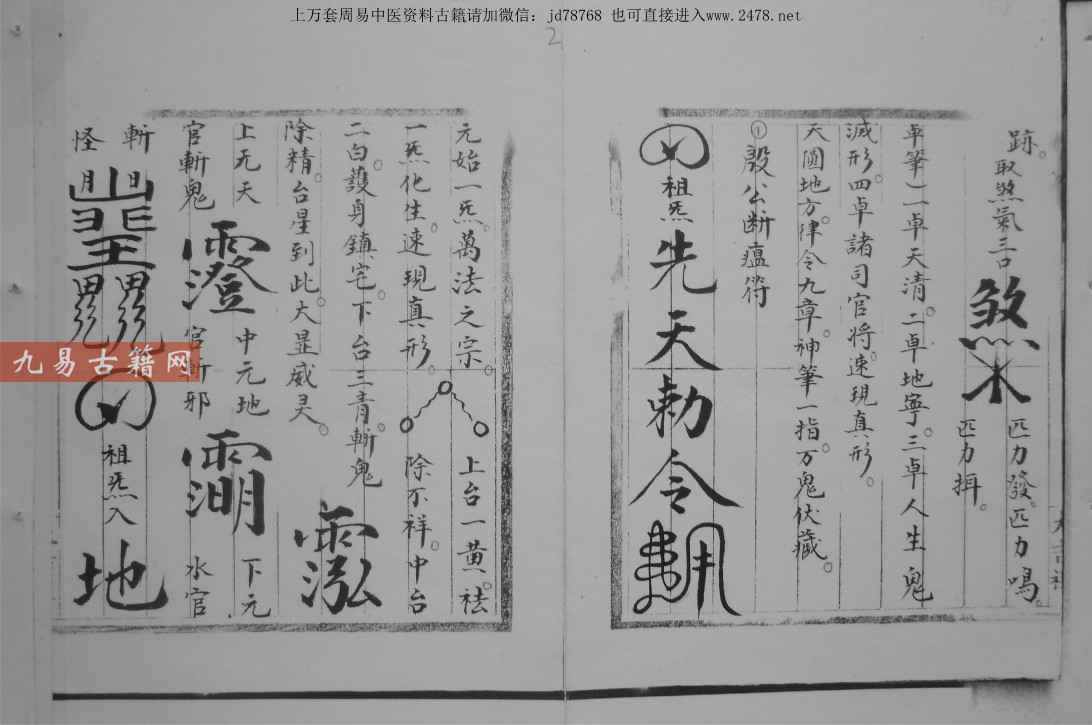 上万套周易中医资料古籍请加微信：jd78768 也可直接进入www.2478.net
2
跡。取煞氣三口
煞
匹力發。匹力鳴。
匹力揖。
卓筆一卓天清。二卓地寧。三卓人生鬼
滅形。四卓諸司官将。速現真形。
天圓地方。律令九章。神筆一指。万鬼伏藏。
①殷公断瘟符
祖炁
先天勅令
元始一炁。萬法之宗。
上台一黄。祛
一炁化生。速現真形。
除不祥。中台
二白。護身鎮宅。下台三青。斬鬼
除精。台星到此。大显威灵。
上元天
官斬鬼
澄
中元地
官斬邪
下元
水官
斬
怪
祖炁入
地
九易古籍网